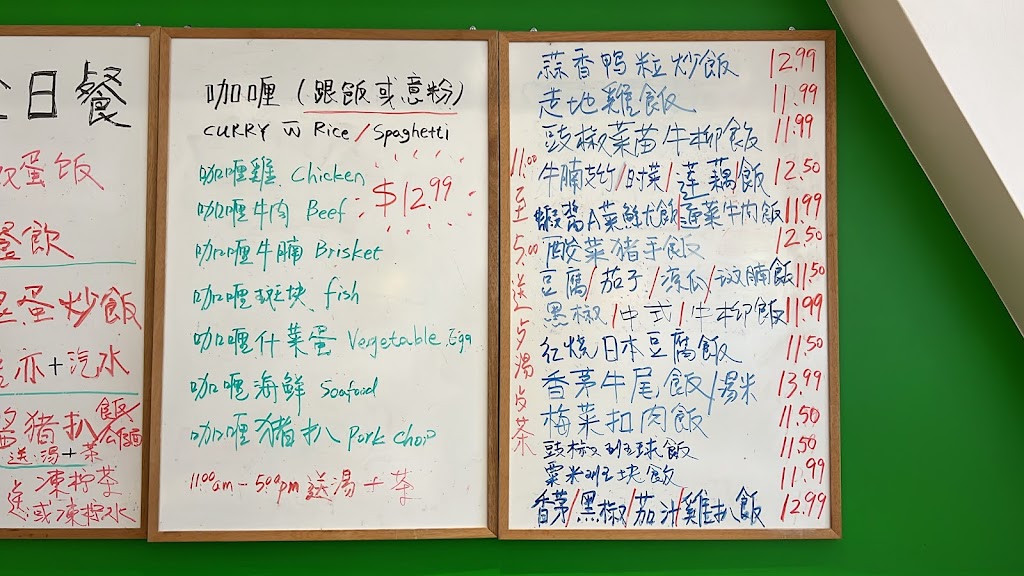 日餐
蛋饭
餐飲
蛋炒飯
亦+汽水
猪扒 飯/公仔麵
送湯+茶
凍檸茶
送或凍檸水
咖喱 (跟飯或意粉)
CURRY W Rice / Spaghetti
咖喱雞 Chicken
$12.99
咖喱牛肉 Beef
咖喱牛腩 Brisket
咖喱斑块 fish
咖喱什菜蛋 Vergetable Egg
咖喱海鮮 Soafood
咖喱猪扒 Pork chop
11:00am - 5:00pm 送湯 + 茶
11:00至5:00送是日湯或茶
蒜香鸭粒炒飯 12.99
走地雞飯 11.99
豉椒菜苗牛柳飯 11.99
牛腩支竹/时菜/蓮藕/飯 12.50
蝦醬A菜鮮尤飯/通菜牛肉飯 11.99
酸菜猪手飯 12.50
豆腐/茄子/凉瓜/斑腩飯 11.50
黑椒/中式/牛柳飯 11.99
红烧日本豆腐飯 11.50
香茅牛尾飯/湯米 13.99
梅菜扣肉飯 11.50
豉椒班球飯 11.50
粟米班块飯 11.99
香茅/黑椒/茄汁/雞扒飯 12.99